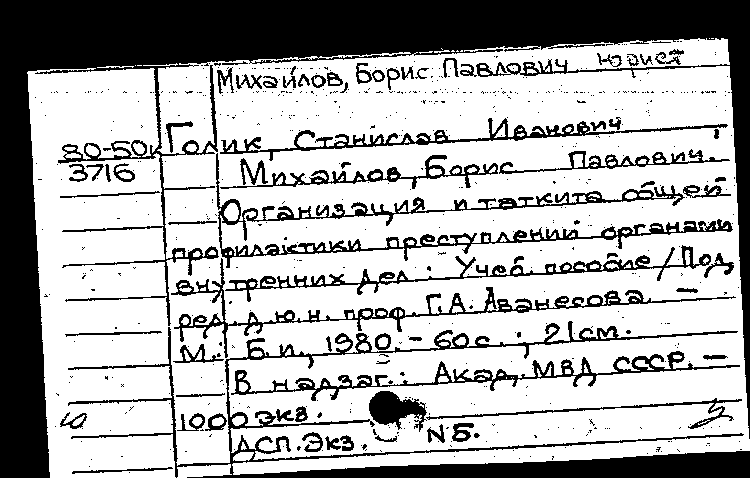 Михайлов, Борис Павлович юрист
80-50к Голик, Станислав Иванович
3716 Михайлов, Борис Павлович.
Организация и таткита общей
профилактики преступлений органами
внутренних дел : Учеб. пособие / Под
ред. д.ю.н. проф. Г.А. Аванесова. —
М.: Б.и., 1980. - 60 с. ; 21 см.
В надзаг.: Акад. МВД СССР. —
1000 экз.
ДСП. Экз. N Б.